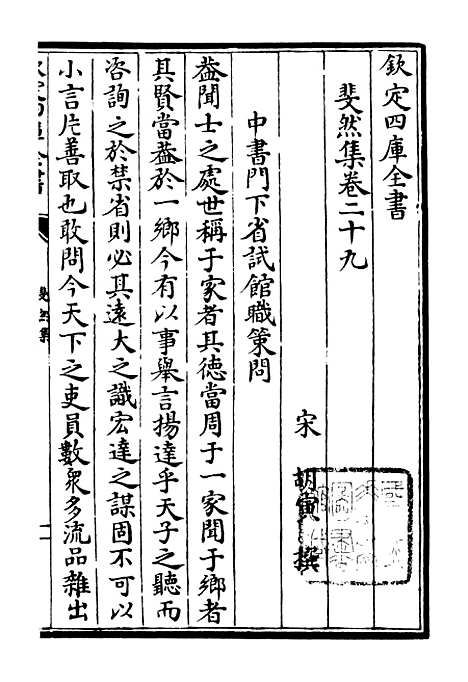 欽定四庫全書
斐然集卷二十九
宋 胡寅 撰
中書門下省試館職策問
蓋聞士之處世稱于家者其德當周于一家聞于鄉者
其賢當蓋於一鄉今有以事舉言揚達乎天子之聽而
咨詢之於禁省則必其遠大之識宏達之謀固不可以
小言片善取也敢問今天下之吏員數衆多流品雜出
斐然集
一